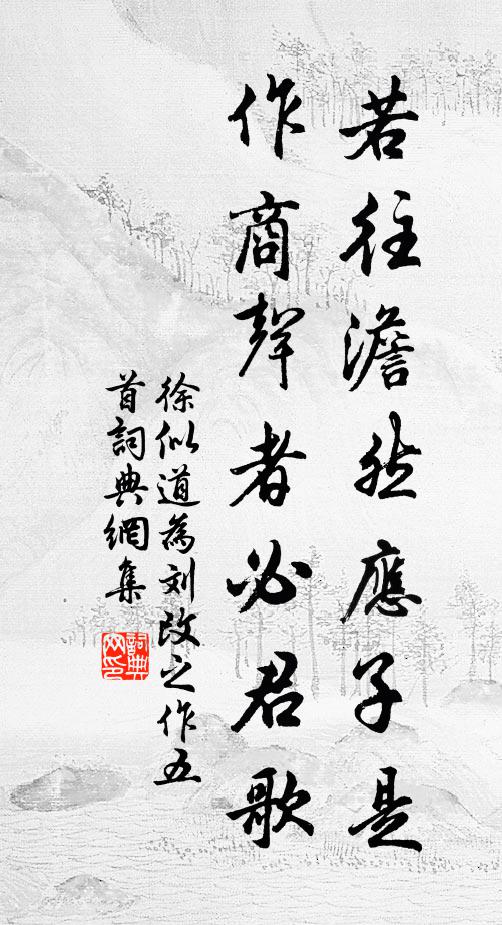 若往澹然應子是
作商聲者必君歌
徐似道為刘改之作五
首詞典網集
詞典网印